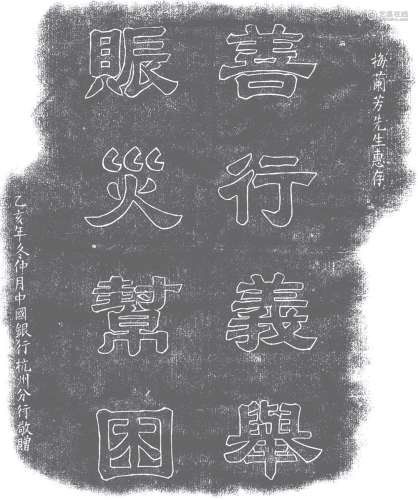 梅蘭芳先生惠存
善行義舉
賑災幫困
乙亥年冬仲月中國銀行杭州分行敬贈